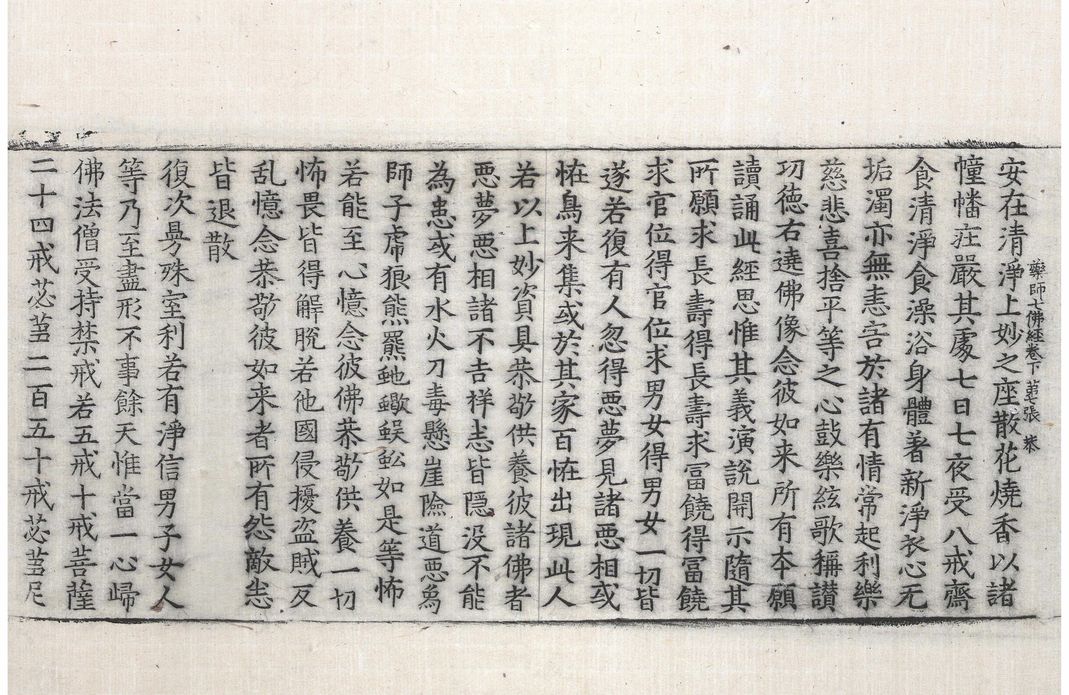 藥師七佛經卷下 張
安在清淨上妙之座散花燒香以諸
幢幡庄嚴其處七日七夜受八戒齋
食清淨食澡浴身體著新淨衣心无
垢濁亦無恚害於諸有情常起利樂
慈悲喜捨平等之心鼓樂絃歌稱讃
功德右遶佛像念彼如来所有本願
讀誦此經思惟其義演說開示隨其
所願求長壽得長壽求冨饒得冨饒
求官位得官位求男女得男女一切皆
遂若復有人忽得悪夢見諸悪相或
恠鳥来集或於其家百恠出現此人
若以上妙資具恭敬供養彼諸佛者
悪夢悪相諸不吉祥悉皆隠没不能
為患或有水火刀毒懸崖險道悪象
師子虎狼熊羆虵蠍蜈蚣如是等怖
若能至心憶念彼佛恭敬供養一切
怖畏皆得解脫若他國侵擾盗賊反
乱憶念恭敬彼如来者所有怨敵悉
皆退散
復次曼殊室利若有淨信男子女人
等乃至盡形不事餘天惟當一心歸
佛法僧受持禁戒若五戒十戒菩薩
二十四戒苾蒭二百五十戒苾蒭尼